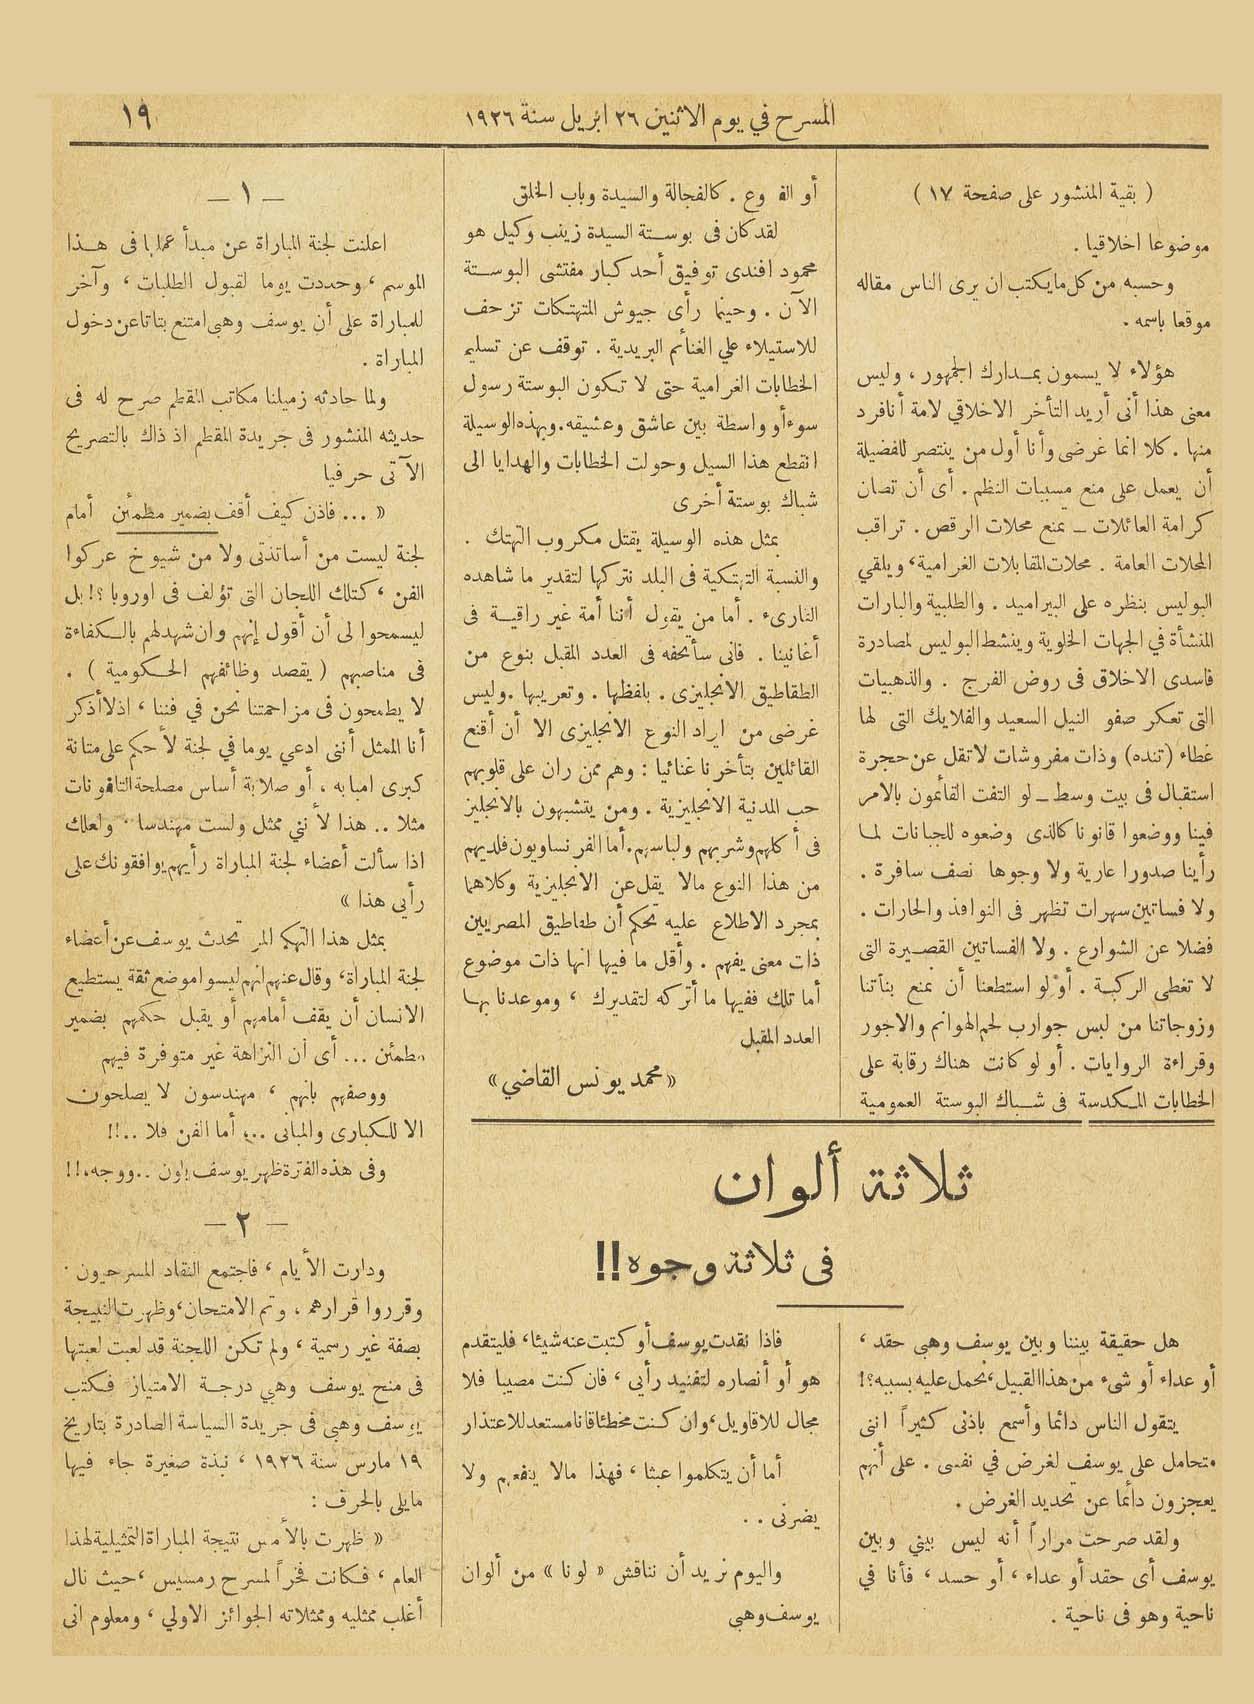 المسرح في يوم الاثنين ٢٦ ابريل سنة ١٩٢٦
١٩
( بقية المنشور على صفحة ١٧ )
موضوعا اخلاقيا .
وحسبه من كل ما يكتب ان يرى الناس مقاله
موقعا باسمه .
هؤلاء لا يسمون بمدارك الجمهور ، وليس
معنى هذا أنى أريد التأخر الاخلاقي لامة أنا فرد
منها . كلا انما غرضى وأنا أول من ينتصر للفضيلة
أن يعمل على منع مسببات النظم . أى أن تصان
كرامة العائلات ــ بمنع محلات الرقص . تراقب
المحلات العامة . محلات المقابلات الغرامية ، ويلقي
البوليس بنظره على البيراميد . والطلبية والبارات
المنشأة في الجهات الخلوية وينشط البوليس لمصادرة
فاسدى الاخلاق فى روض الفرج . والذهبيات
التى تعكر صفو النيل السعيد والفلايك التى لها
غطاء (تنده) وذات مفروشات لا تقل عن حجرة
استقبال فى بيت وسط ــ لو التفت القائمون بالامر
فينا ووضعوا قانونا كالذى وضعوه للجبانات لما
رأينا صدورا عارية ولا وجوها نصف سافرة .
ولا فساتين سهرات تظهر فى النوافذ والحارات .
فضلا عن الشوارع . ولا الفساتين القصيرة التى
لا تغطى الركبة . أو لو استطعنا أن نمنع بنأتنا
وزوجاتنا من لبس جوارب لحم الهوانم والاجور
وقراءة الروايات . أو لو كانت هناك رقابة على
الخطابات المكدسة فى شباك البوستة العمومية
أو الفروع . كالفجالة والسيدة وباب الخلق
لقد كان فى بوستة السيدة زينب وكيل هو
محمود افندى توفيق أحد كبار مفتشى البوستة
الآن . وحينما رأى جيوش المتهتكات تزحف
للاستيلاء علي الغنائم البريدية . توقف عن تسليم
الخطابات الغرامية حتى لا تكون البوستة رسول
سوء أو واسطة بين عاشق وعشيقه . وبهذه الوسيلة
انقطع هذا السيل وحولت الخطابات والهدايا الى
شباك بوستة أخرى
بمثل هذه الوسيلة يقتل مكروب التهتك .
والنسبة التهتكية فى البلد نتركها لتقدير ما شاهده
القارىء . أما من يقول أننا أمة غير راقية فى
أغانينا . فانى سأتحفه فى العدد المقبل بنوع من
الطقاطيق الانجليزى . بلفظها . وتعريبها . وليس
غرضى من ايراد النوع الانجليزى الا أن أقنع
القائلين بتأخرنا غنائيا : وهم ممن ران على قلوبهم
حب المدنية الانجليزية . ومن يتشبهون بالانجليز
فى أكلهم وشربهم ولباسهم . أما الفرنساويون فلديهم
من هذا النوع مالا يقل عن الانجليزية وكلاهما
بمجرد الاطلاع عليه تحكم أن طقاطيق المصريين
ذات معنى يفهم . وأقل ما فيها انها ذات موضوع
أما تلك ففيها ما أتركه لتقديرك ، وموعدنا بها
العدد المقبل
« محمد يونس القاضي »
ثلاثة ألوان
فى ثلاثة وجوه !!
هل حقيقة بيننا وبين يوسف وهبى حقد ،
أو عداء أو شىء من هذا القبيل ، نحمل عليه بسببه ؟!
يتقول الناس دائما وأسمع باذنى كثيراً اننى
متحامل على يوسف لغرض في نفسى . على أنهم
يعجزون دائما عن تحديد الغرض .
ولقد صرحت مراراً أنه ليس بيني وبين
يوسف أى حقد أو عداء ، أو حسد ، فأنا في
ناحية وهو فى ناحية .
فاذا نقدت يوسف أو كتبت عنه شيئا ، فليتقدم
هو أو أنصاره لتفنيد رأيى ، فان كنت مصيبا فلا
مجال للاقاويل ، وان كنت مخطئا فانا مستعد للاعتذار
أما أن يتكلموا عبثا ، فهذا مالا ينفعهم ولا
يضرنى . .
واليوم نريد أن نناقش « لونا » من ألوان
يوسف وهبى
— ١ —
اعلنت لجنة المباراة عن مبدأ عملها فى هذا
الموسم ، وحددت يوما لقبول الطلبات ، وآخر
للمباراة على أن يوسف وهبى امتنع بتاتا عن دخول
المباراة .
ولما حادثه زميلنا مكاتب المقطم صرح له فى
حديثه المنشور فى جريدة المقطم اذ ذاك بالتصريح
الآتى حرفيا
« ... فاذن كيف أقف بضمير مطمئن أمام
لجنة ليست من أساتذتى ولا من شيوخ عركوا
الفن ، كتلك اللجان التى تؤلف فى اوروبا ؟! بل
ليسمحوا لى أن أقول إنهم وان شهد لهم بالكفاءة
فى مناصبهم ( يقصد وظائفهم الحكومية ) .
لا يطمحون فى مزاحمتنا نحن في فننا ، اذ لا أذكر
أنا الممثل أننى ادعي يوما في لجنة لأحكم على متانة
كبرى امبابه ، أو صلابة أساس مصلحة التلفونات
مثلا .. هذا لأنني ممثل ولست مهندسا . ولعلك
اذا سألت أعضاء لجنة المباراة رأيهم يوافقونك على
رأيى هذا »
بمثل هذا التهكم المر تحدث يوسف عن أعضاء
لجنة المباراة ، وقال عنهم انهم ليسوا موضع ثقة يستطيع
الانسان أن يقف أمامهم أو يقبل حكمهم بضمير
مطمئن ... أى أن النزاهة غير متوفرة فيهم
ووصفهم بانهم ، مهندسون لا يصلحون
الا للكبارى والمبانى ... أما الفن فلا ..!!
وفى هذه الفترة ظهر يوسف بلون .. ووجه .!!
— ٢ —
ودارت الأيام ، فاجتمع النقاد المسرحيون .
وقرروا قرارهم ، وتم الامتحان ، وظهرت النتيجة
بصفة غير رسمية ، ولم تكن اللجنة قد لعبت لعبتها
فى منح يوسف وهبي درجة الامتياز فكتب
يوسف وهبى فى جريدة السياسة الصادرة بتاريخ
١٩ مارس سنة ١٩٢٦ ، نبذة صغيرة جاء فيها
مايلى بالحرف :
« ظهرت بالأمس نتيجة المباراة التمثيلية لهذا
العام ، فكانت فخراً لمسرح رمسيس ، حيث نال
أغلب ممثليه وممثلاته الجوائز الاولي ، ومعلوم انى